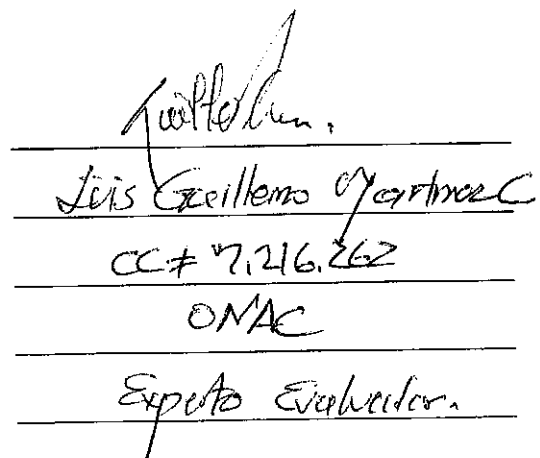 Luis Guillermo Martinez C
CC# 7.216.262
ONAC
Experto Evaluador.